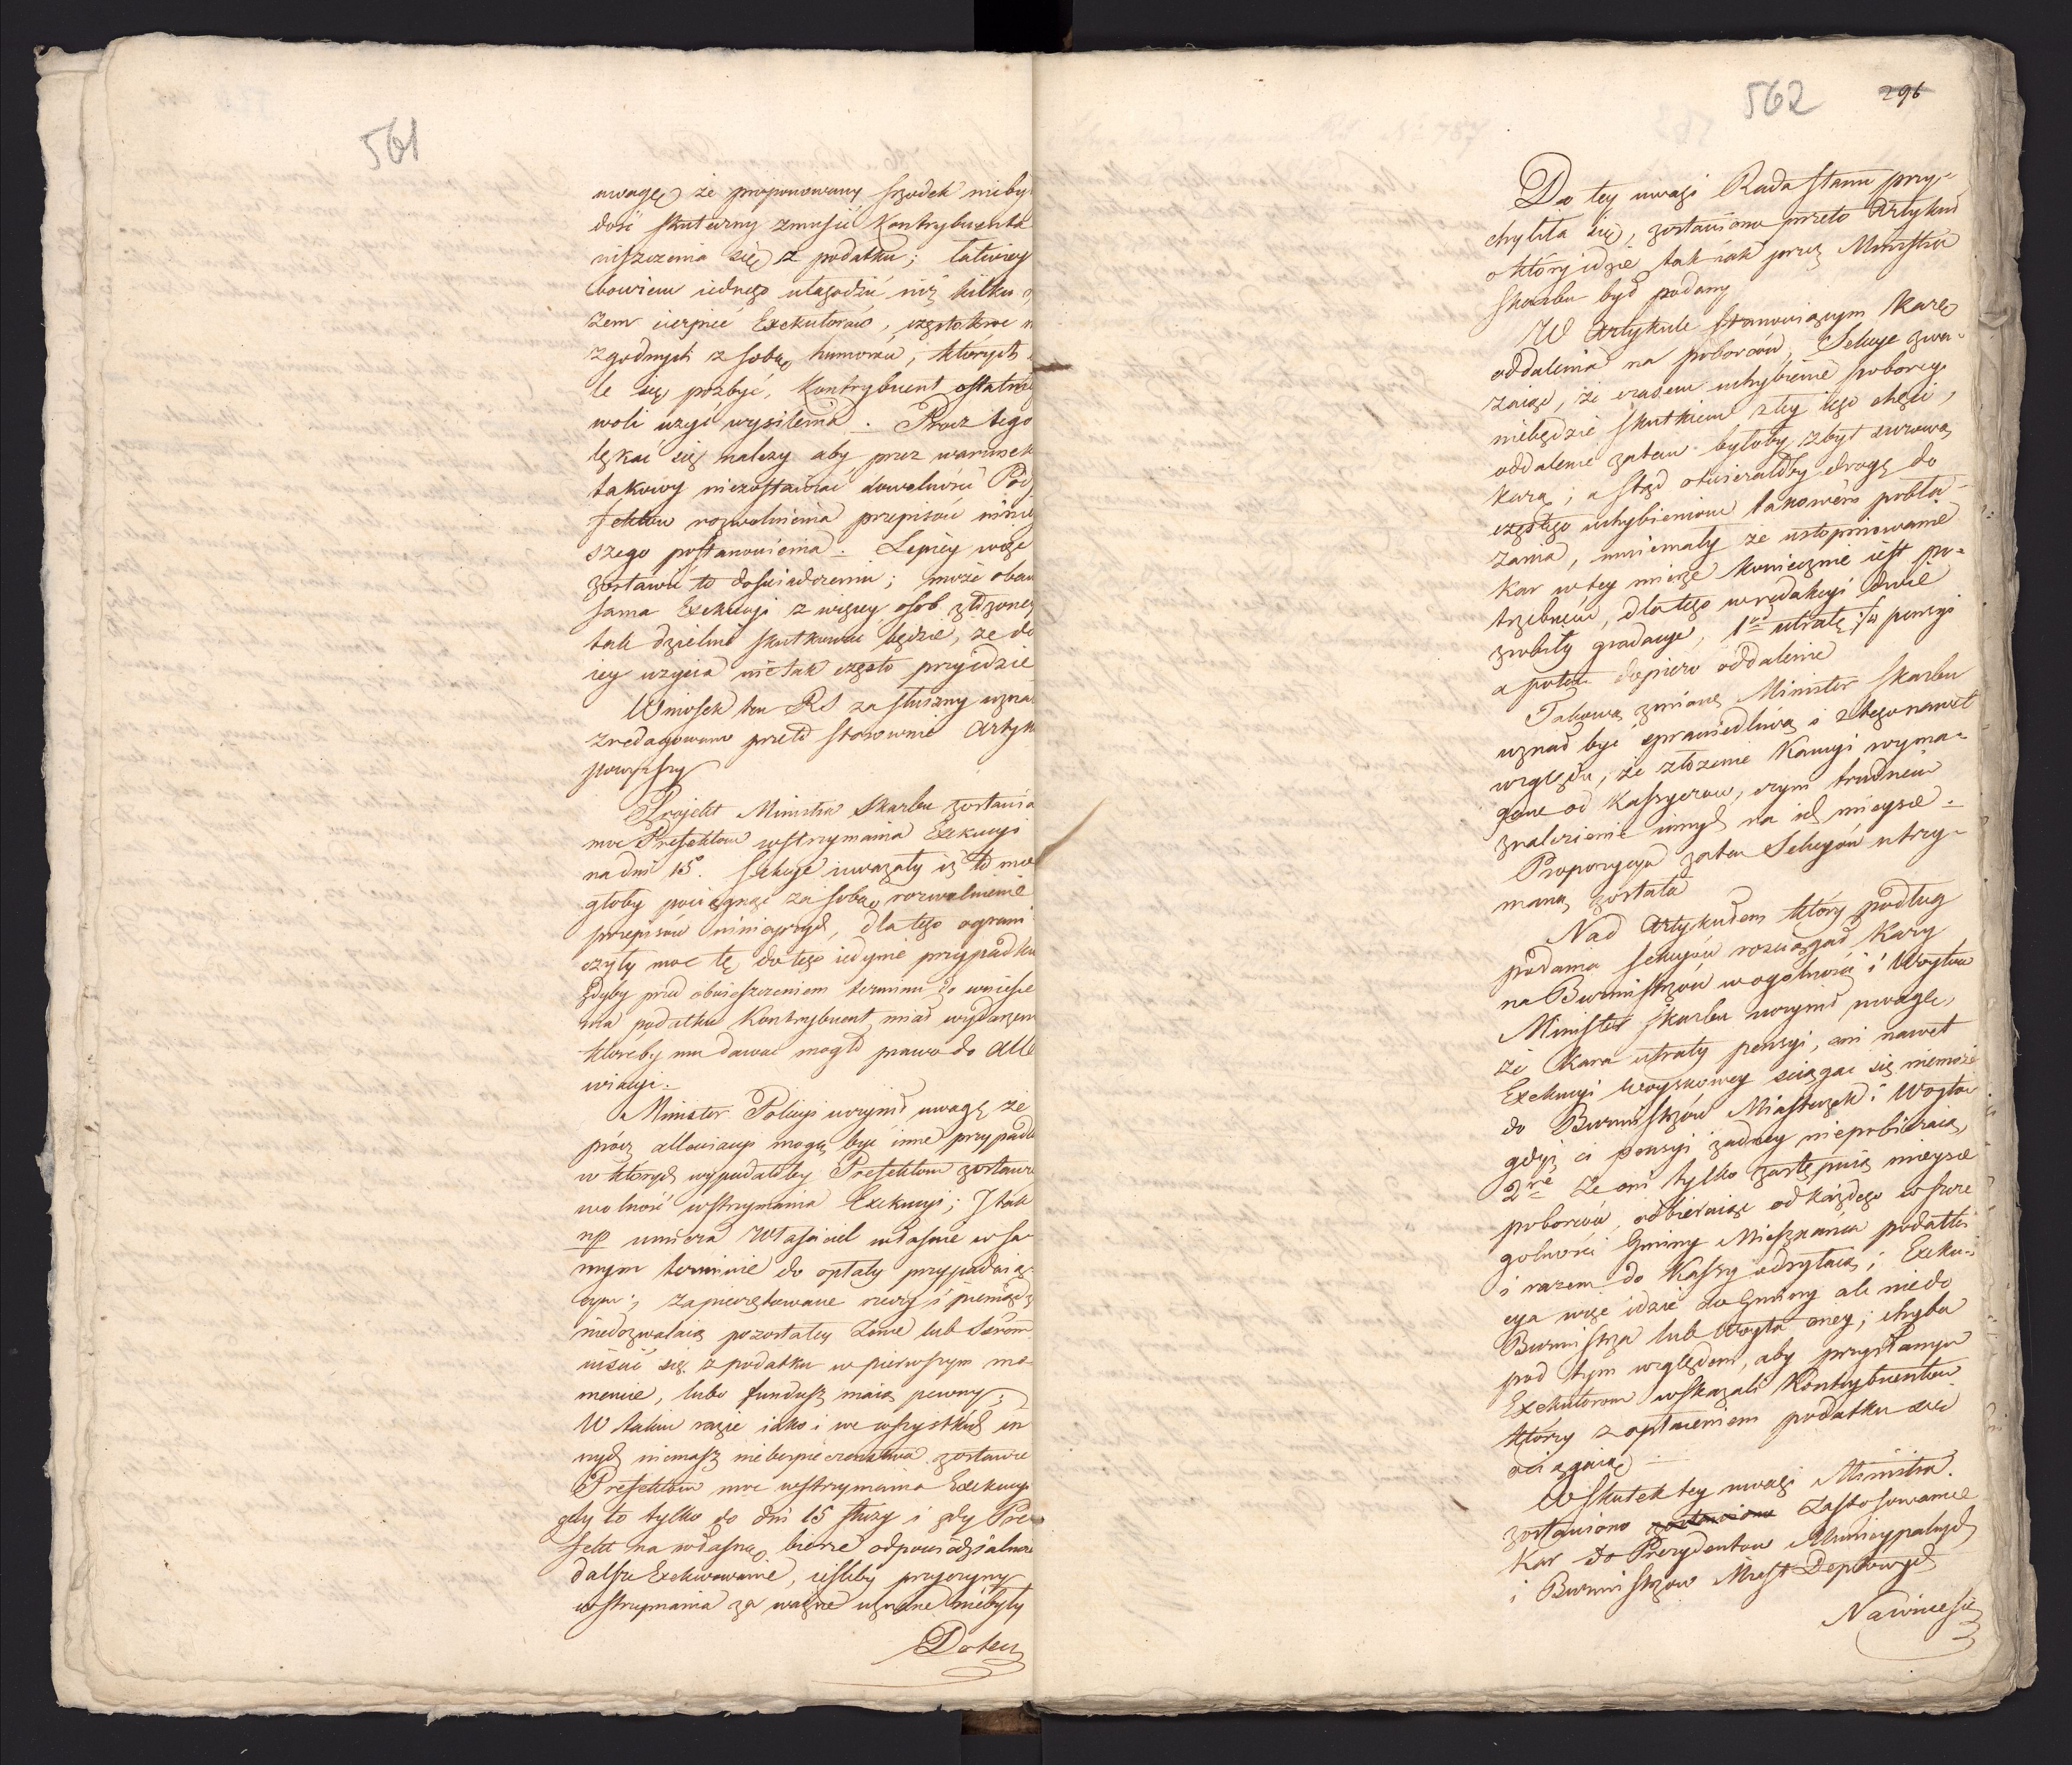 561
uwagę że proponowany szrodek nieby
dość skuteczny zmusić Kontrybuenta
uiszczenia się z podatku; łatwiey
bowiem iednego ułagodzić niż kilku
zem cierpieć Exekutorów, częstokroc n
zgodnych z sobą humorów, których
le się pozbyć, Kontrybuent ostatnie
woli użyć wysilenia. Procz tego
lękać się należy aby przez warunek
takowy niezostawiać dowolności Pre
fektów rozwolnienia przepisów ninie
szego postanowienia. Lepiey więc
zostawić to doświadczeniu; może obaw
sama Exekucyi z więcey osob złożoney
tak dzielnie skutkować będzie, że do
iey użycia nie tak często przyidzie
Wniosek ten RS za słuszny uzna
zredagowano przeto stosownie Artyk
powyższy
Projekt Ministra Skarbu zostawia
moc Prefektom wstrzymania Exekucyi
na dni 15. Sekcye uważały iż to mo
głoby pociągnąć za sobą rozwolnienie
przepisów ninieyszych, dla tego ograni
czyły moc tę do tego iedynie przypadku
gdyby przed obwieszczeniem terminu do wniesie
nia podatku Kontrybuent miał wydarzenie
któreby mu dawać mogło prawo do Alle
wiacyi.
Minister Policyi uczynił uwagę że
prócz allewiacyi mogą być inne przypadk
w których wypadałoby Prefektom zostawi
wolność wstrzymania Exekucyi; I tak
np umiera Właściciel własnie w sa
mym terminie do opłaty przypadaią
cym; zapieczętowane rzeczy i pieniądze
niedozwalaią pozostałey Żonie lub Sierom
uiścić się z podatku w pierwszym mo
mencie, lubo fundusz maią pewny;
W takim razie iako i we wszystkich in
nych niemasz niebezpieczenstwa zostawić
Prefektom moc wstrzymania Exekucyi
gdy to tylko do dni 15 służy i gdy Pre
fekt na własną bierze odpowiedzialność
dalsze Exekwowanie, iesliby przyczyny
wstrzymania za ważne uznane niebyły
Do tey
562 296
Do tey uwagi Rada Stanu przy-
chyliła się, zostawiono przeto Artykuł
o który idzie tak iak przez Ministra
Skarbu był podany
W Artykule stanowiącym karę
oddalenia na poborców, Sekcye zwa-
żaiąc, że czasem uchybienie poborcy
niebędzie skutkiem złey iego chęci,
oddalenie zatem byłoby zbyt surową
karą; a stąd otwierałby drogę do
częstego uchybieniom takowém pobła-
żania, mniemały że ustopniowanie
kar w tey mierze koniecznie iest po-
trzebném, dla tego w redakcyi dwie
zrobiły gradacye, 1od utratę pensyi
a potem dopiero oddalenie
Takową zmianę Minister Skarbu
uznał być sprawiedliwą i z tego nawet
względu, że złożenie Kaucyi wyma-
gane od Kassyerów, czyni trudnem
znalezienie innych na ich mieysce.
Propozycya zatem Sekcyów utrzy-
maną została
Nad Artykułem który podług
podania Sekcyów rozciągał kary
na Burmistrzów w ogolności i Woytów
Minister Skarbu uczynił uwagę,
że kara utraty pensyi, ani nawet
Exekucyi woyskowey sciągać się niemoże
do Burmistrzów Miasteczek i Woytów
gdyż ci pensyi żadney niepobieraią,
2re Że oni tylko zastępuią mieysce
poborców, odbieraiąc od każdego w szcze
golności Gminy Mieszkańca podatki
i razem do Kassy odsyłaią; Exeku-
cya więc idzie do Gminy ale nie do
Burmistrza lub Woyta oney; chyba
pod tym względem, aby przysłanym
Exekutorom wskazali Kontrybuentów
którzy z opłaceniem podatku się
ociągaią
W skutek tey uwagi Ministra
zostawiono zostawiono zastosowanie
kar do Prezydentów Municypalnych
i Burmistrzów Miast Deptowych
Na wniesie